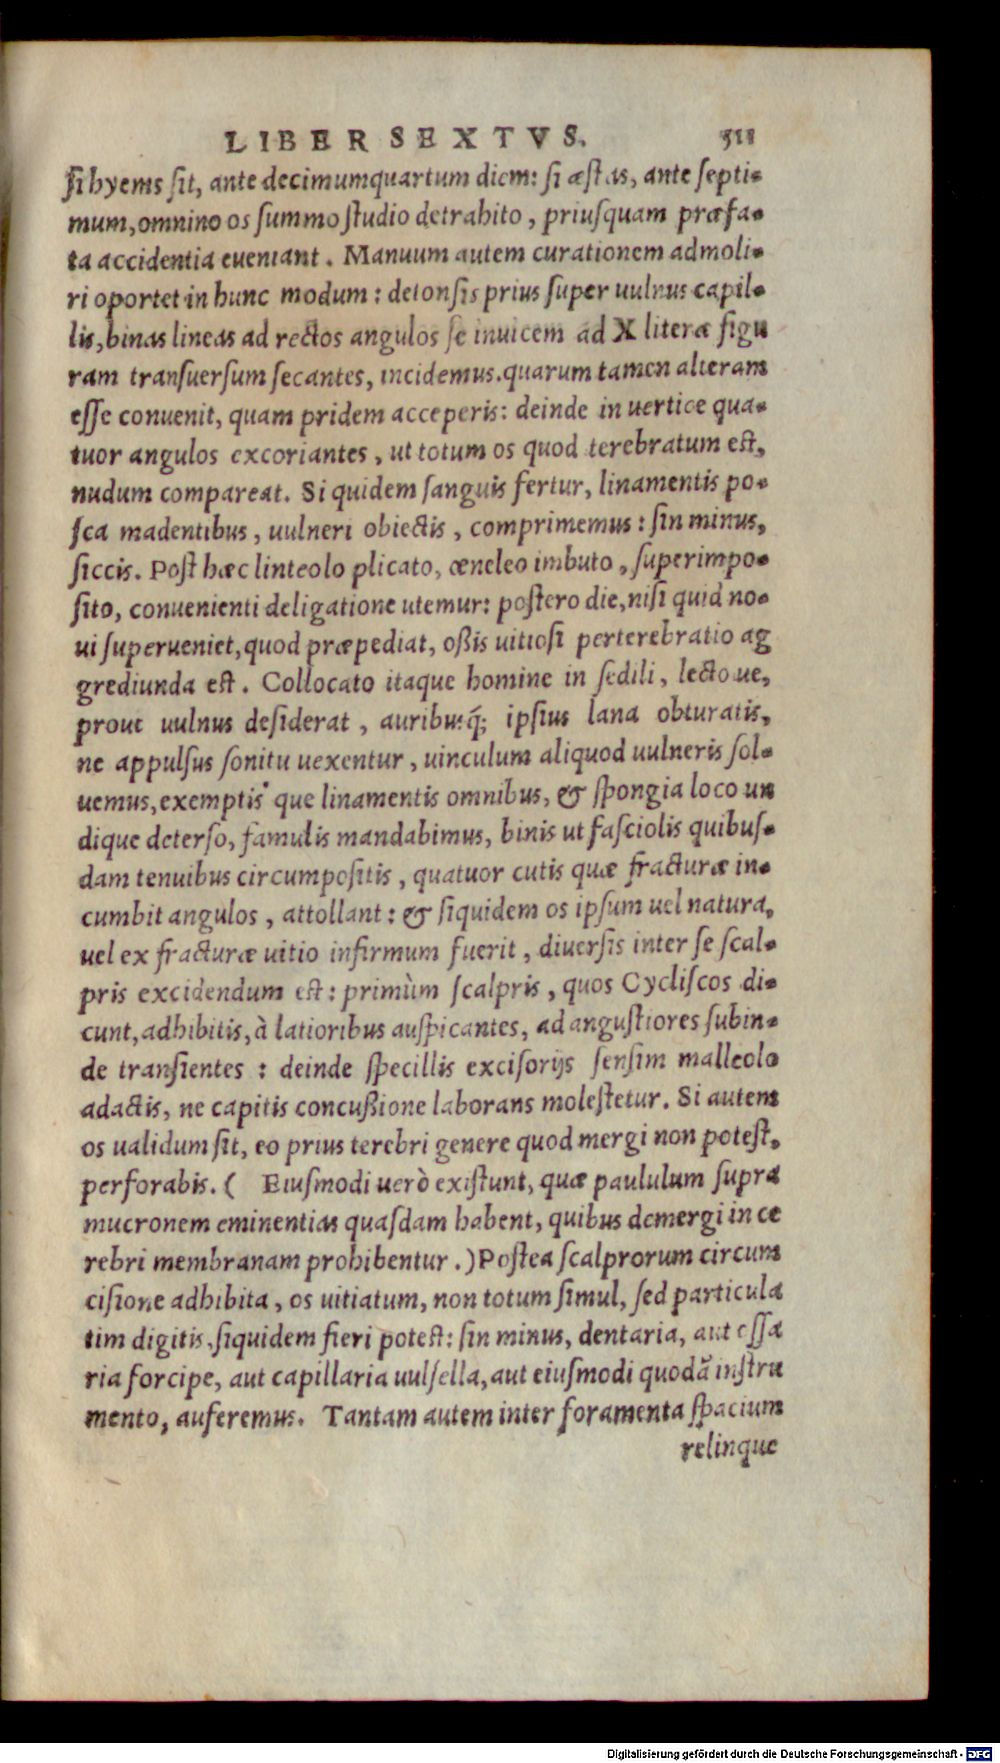 LIBER SEXTVS. 511
si hyems sit, ante decimumquartum diem: si æstas, ante septi-
mum, omnino os summo studio detrahito, priusquam præfa-
ta accidentia eveniant. Manuum autem curationem admoli-
ri oportet in hunc modum: detonsis prius super uulnus capil-
lis, binas lineas ad rectos angulos se inuicem ad X literæ figu
ram transuersum secantes, incidemus. quarum tamen alteram
esse convenit, quam pridem acceperis: deinde in uertice qua-
tuor angulos excoriantes, ut totum os quod terebratum est,
nudum compareat. Si quidem sanguis fertur, linamentis po-
sca madentibus, uulneri obiectis, comprimemus: sin minus,
siccis. Post hæc linteolo plicato, œneleo imbuto, superimpo-
sito, convenienti deligatione utemur: postero die, nisi quid no-
ui superueniet, quod præpediat, oßis uitiosi perterebratio ag
grediunda est. Collocato itaque homine in sedili, lecto ue,
prout uulnus desiderat, auribusq́; ipsius lana obturatis,
ne appulsus sonitu uexentur, uinculum aliquod uulneris sol-
uemus, exemptis que linamentis omnibus, & spongia loco un
dique deterso, famulis mandabimus, binis ut fasciolis quibus-
dam tenuibus circumpositis, quatuor cutis quæ fracturæ in-
cumbit angulos, attollant: & siquidem os ipsum uel natura,
uel ex fracturæ uitio infirmum fuerit, diuersis inter se scal-
pris excidendum est: primùm scalpris, quos Cycliscos di-
cunt, adhibitis, à latioribus auspicantes, ad angustiores subin-
de transientes: deinde specillis excisorijs sensim malleolo
adactis, ne capitis concußione laborans molestetur. Si autem
os ualidum sit, eo prius terebri genere quod mergi non potest,
perforabis. ( Eiusmodi uerò existunt, quæ paululum supra
mucronem eminentias quasdam habent, quibus demergi in ce
rebri membranam prohibentur.) Postea scalprorum circum
cisione adhibita, os uitiatum, non totum simul, sed particula
tim digitis, siquidem fieri potest: sin minus, dentaria, aut ossa
ria forcipe, aut capillaria uulsella, aut eiusmodi quodã instru
mento, auferemus. Tantam autem inter foramenta spacium
relinque
Digitalisierung gefördert durch die Deutsche Forschungsgemeinschaft - DFG